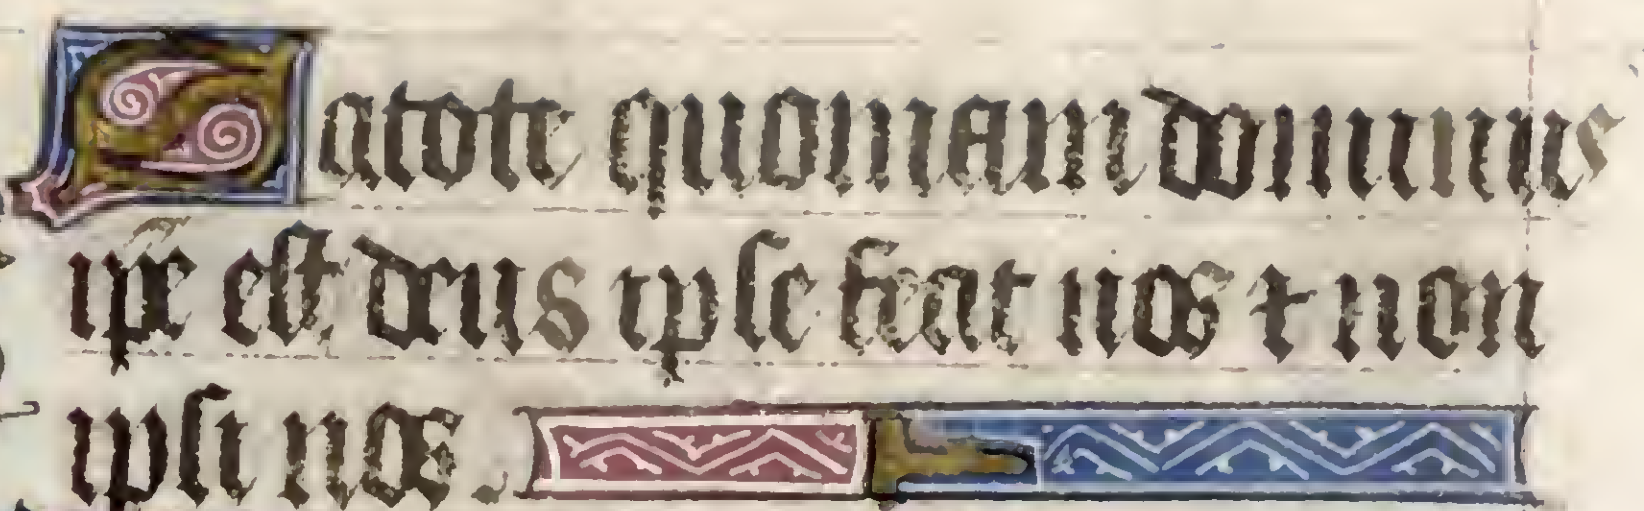 Satote quoniam dominus
ip̅e est deus ipse fecit nos ⁊ non
ipsi nos.